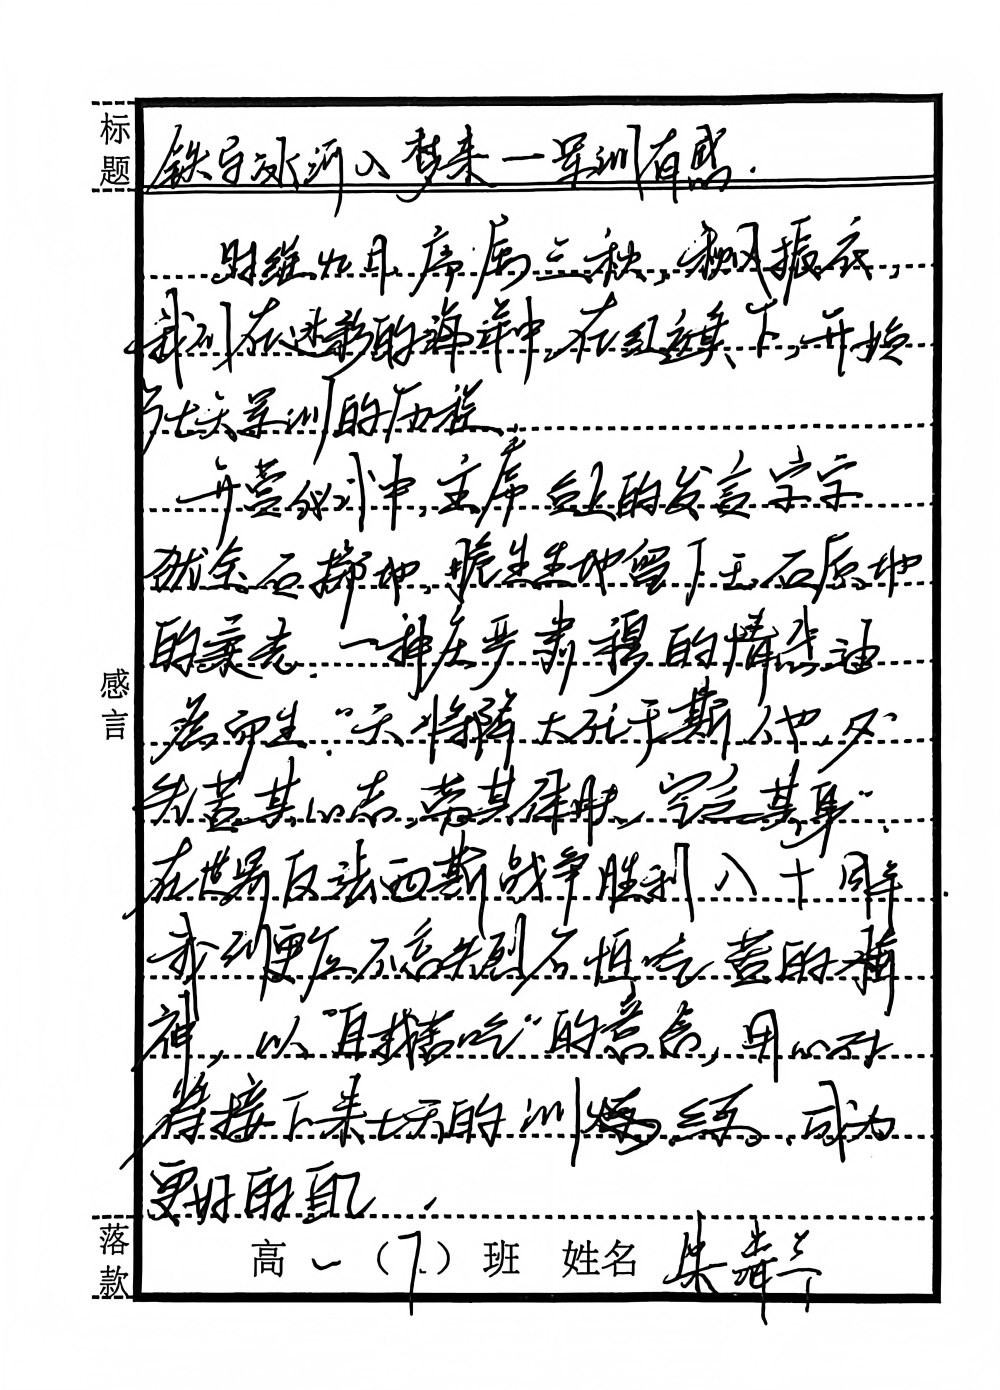 标题
铁马冰河入梦来一军训有感.
时维九月,序属三秋,秋风振衣,
我们在迷彩的海洋中,在红旗下,开始
了七天军训的历程.
开营仪式中,主席台上的发言字字
犹金石掷地,脆生生地留下王石原地
的 一种庄严肃穆的情感油
然而生."天将降大任于斯人也,必
先苦其心志,劳其体肤,空乏其身".
在世界反法西斯战争胜利八十周年
我们更应不 不怕吃苦的精
神,以"自找苦吃"的意念,用心对
待接下来七天的训练,成为
更好的自己.
感言
落款
高一(7)班 姓名 朱